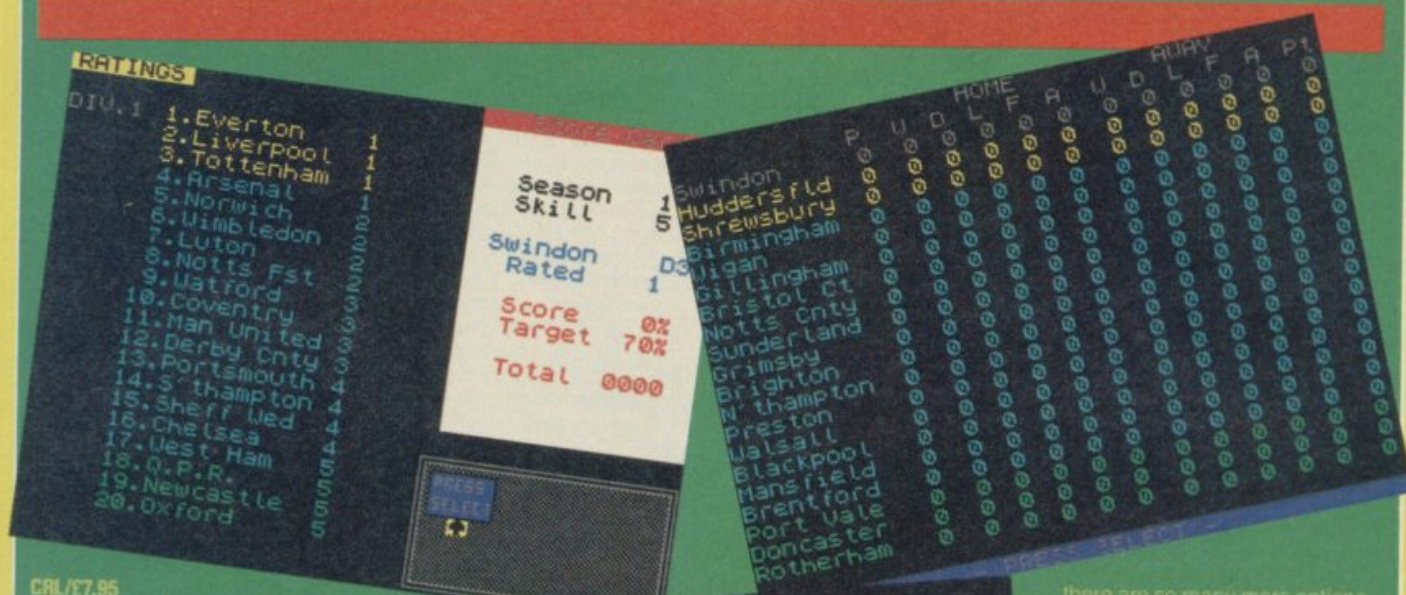 RATINGS
DIV.1 1.Everton 1
2.Liverpool 1
3.Tottenham 1
4.Arsenal 1
5.Norwich 2
6.Wimbledon 2
7.Luton 2
8.Notts Fst 2
9.Watford 3
10.Coventry 3
11.Man United 3
12.Derby Cnty 3
13.Portsmouth 4
14.S'thampton 4
15.Sheff Wed 4
16.Chelsea 4
17.West Ham 5
18.Q.P.R. 5
19.Newcastle 5
20.Oxford 5
Score Car
Season 1
Skill 5
Swindon D3
Rated 1
Score 0%
Target 70%
Total 0000
PRESS
SELECT
HOME AWAY
P W D L F A W D L F A Pt
Swindon 0 0 0 0 0 0 0 0 0 0 0 0
Huddersfld 0 0 0 0 0 0 0 0 0 0 0 0
Shrewsbury 0 0 0 0 0 0 0 0 0 0 0 0
Birmingham 0 0 0 0 0 0 0 0 0 0 0 0
Wigan 0 0 0 0 0 0 0 0 0 0 0 0
Gillingham 0 0 0 0 0 0 0 0 0 0 0 0
Bristol Ct 0 0 0 0 0 0 0 0 0 0 0 0
Notts Cnty 0 0 0 0 0 0 0 0 0 0 0 0
Sunderland 0 0 0 0 0 0 0 0 0 0 0 0
Grimsby 0 0 0 0 0 0 0 0 0 0 0 0
Brighton 0 0 0 0 0 0 0 0 0 0 0 0
N'thampton 0 0 0 0 0 0 0 0 0 0 0 0
Preston 0 0 0 0 0 0 0 0 0 0 0 0
Walsall 0 0 0 0 0 0 0 0 0 0 0 0
Blackpool 0 0 0 0 0 0 0 0 0 0 0 0
Mansfield 0 0 0 0 0 0 0 0 0 0 0 0
Brentford 0 0 0 0 0 0 0 0 0 0 0 0
Port Vale 0 0 0 0 0 0 0 0 0 0 0 0
Doncaster 0 0 0 0 0 0 0 0 0 0 0 0
Rotherham 0 0 0 0 0 0 0 0 0 0 0 0
PRESS SELECT
CRL/£7.95
there are so many more options